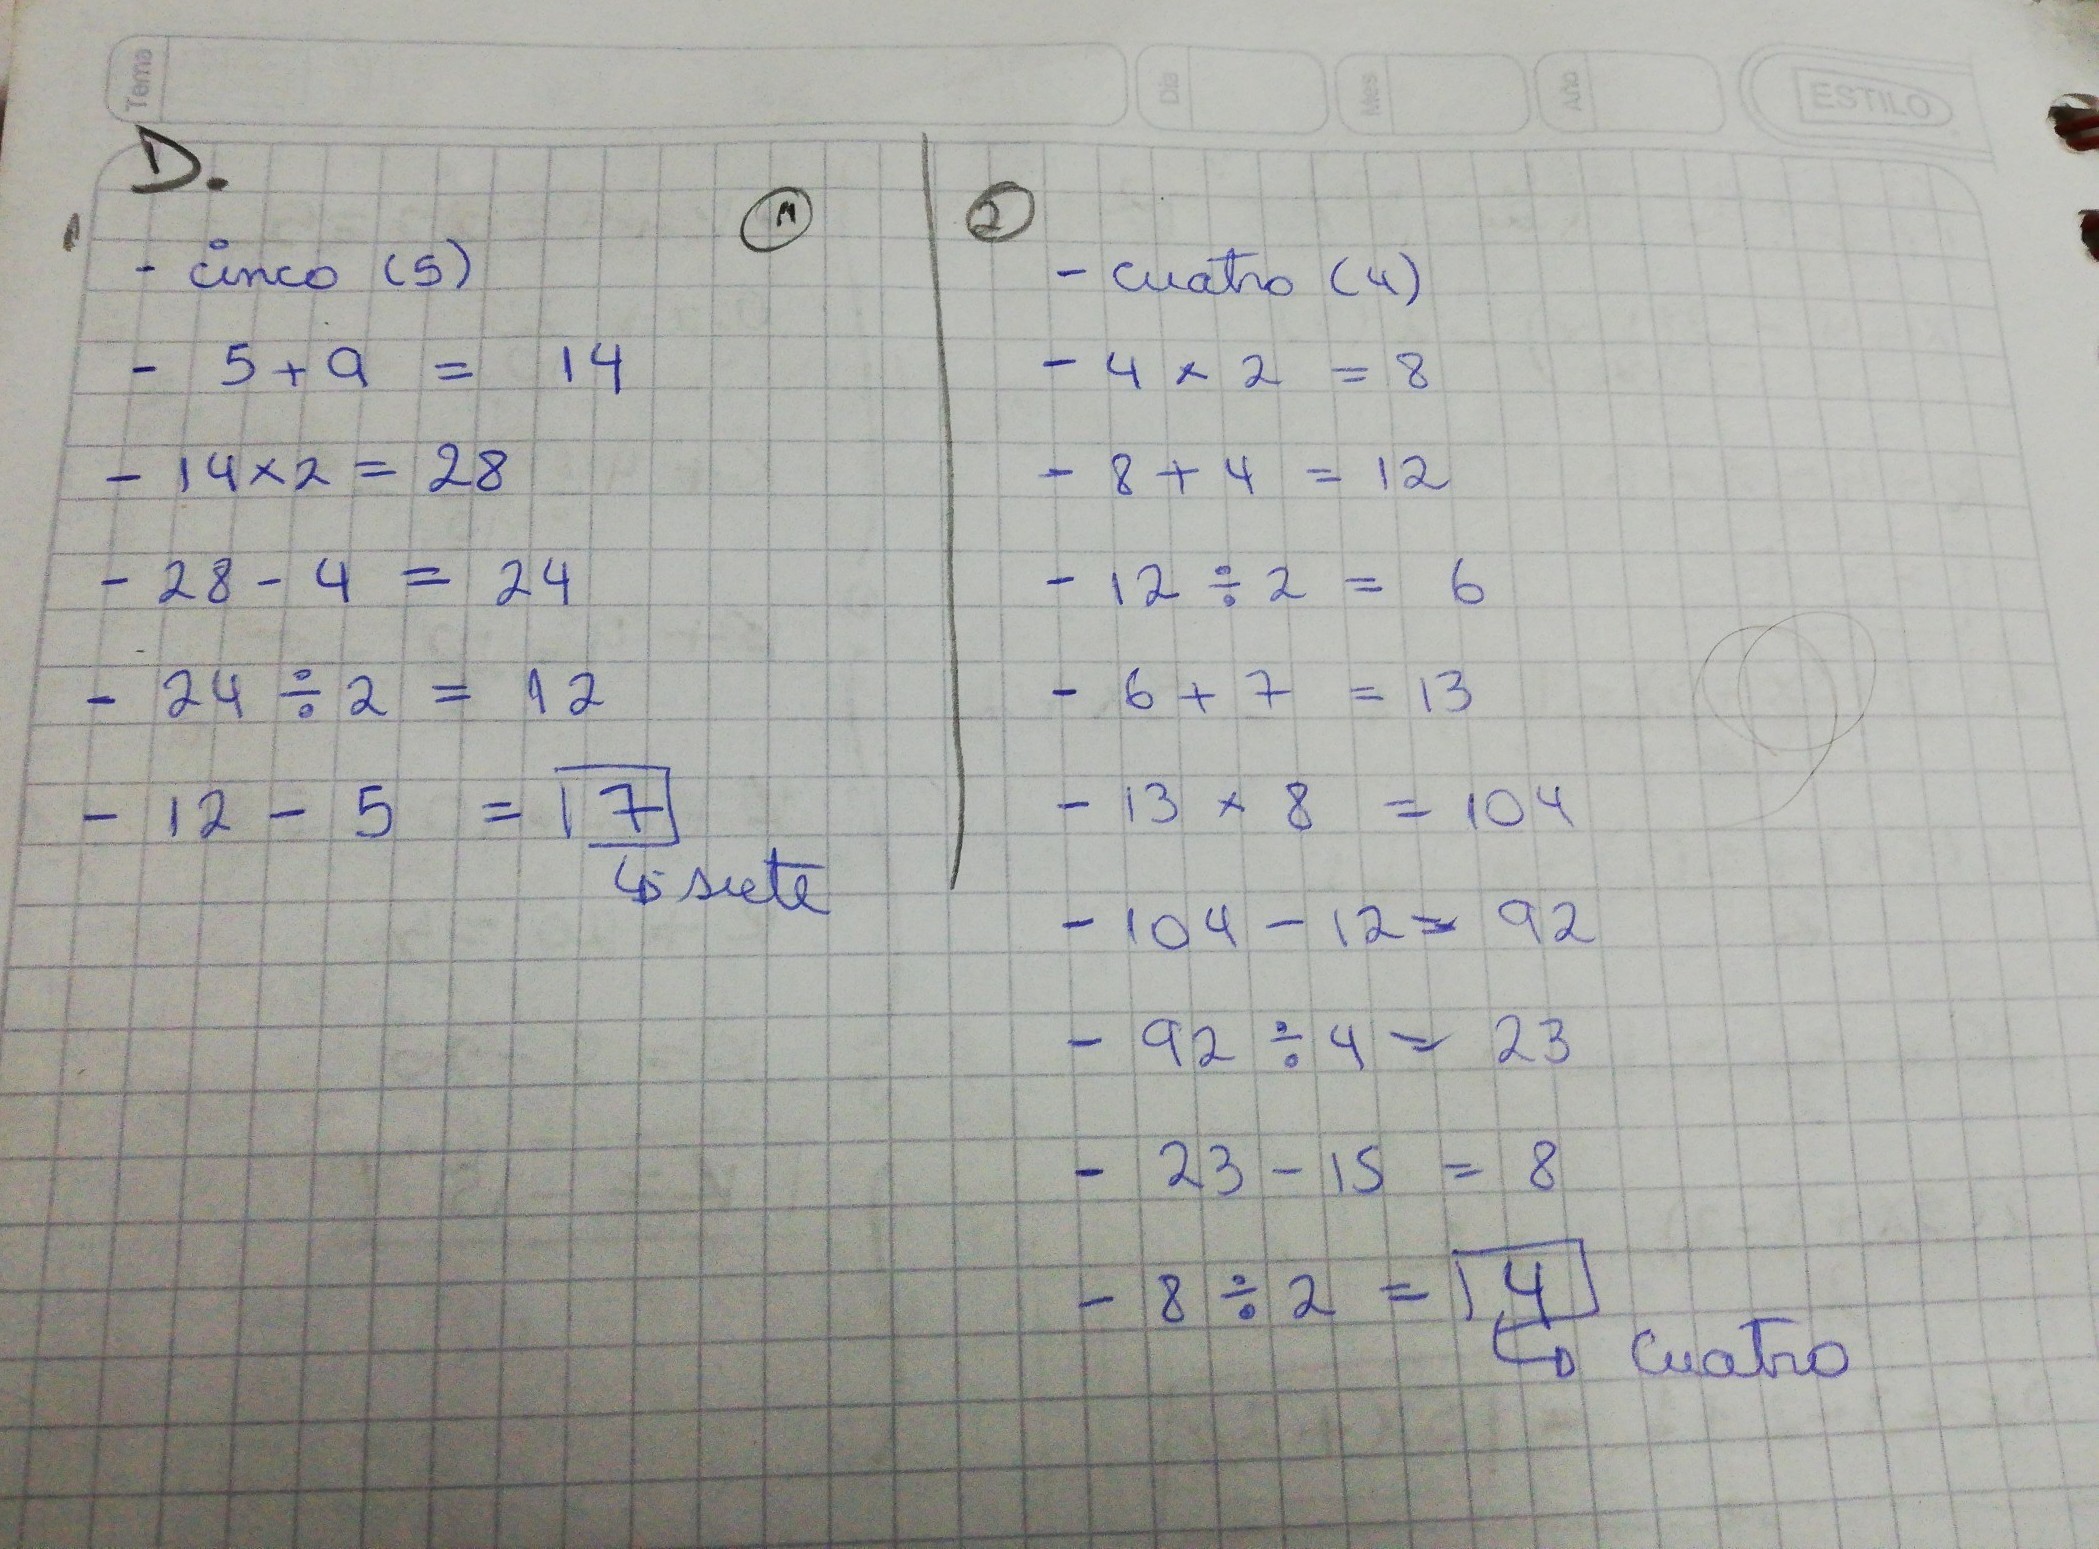 Tema
Día
Mes
Año
ESTILO
D.
1
- cinco (5)
- 5 + 9 = 14
- 14 × 2 = 28
- 28 - 4 = 24
- 24 ÷ 2 = 12
- 12 - 5 = 7
siete
2
- cuatro (4)
- 4 × 2 = 8
- 8 + 4 = 12
- 12 ÷ 2 = 6
- 6 + 7 = 13
- 13 × 8 = 104
- 104 - 12 = 92
- 92 ÷ 4 = 23
- 23 - 15 = 8
- 8 ÷ 2 = 4
cuatro